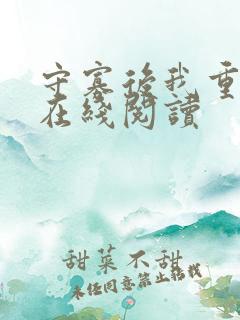 守寡后我重
在线阅读
甜菜不甜
未经同意禁止转载